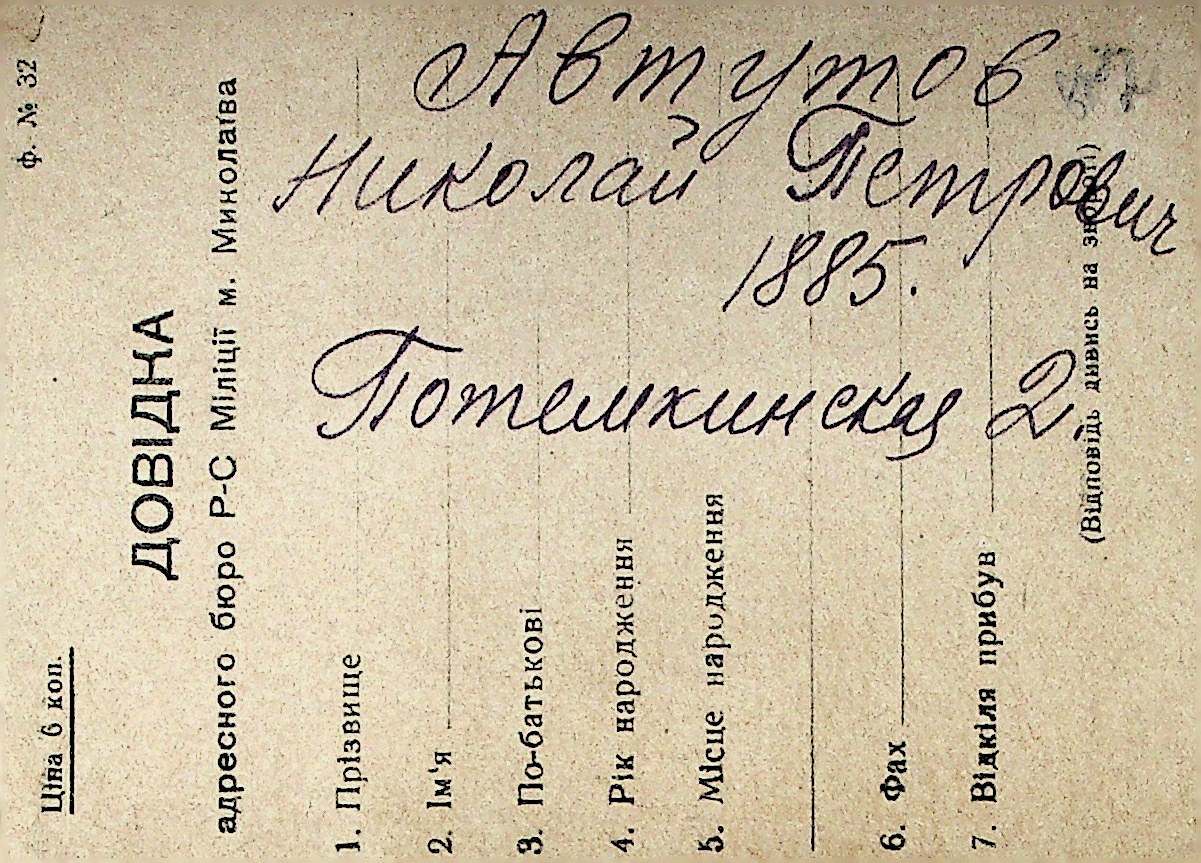 Автутов
Николай Петрович
1885.
Потемкинская 2.
ф. № 32
Ціна 6 коп.
ДОВІДКА
адресного бюро Р-С Міліції м. Миколаїва
1. Прізвище
2. Ім'я
3. По-батькові
4. Рік народження
5. Місце народження
6. Фах
7. Відкіля прибув
(Відповідь дивись на звороті)